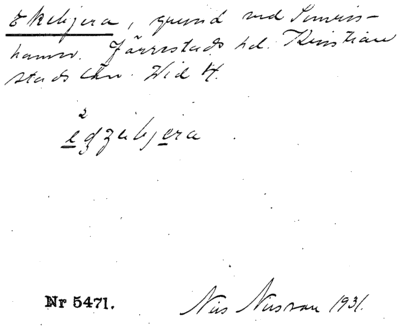 Ekebjera, grund vid Simris-
hamn. Järrestads hd. Kristian
stads län. Hid H.
2
egzebjera
Nr 5471.
Nils Nilsson 1931.